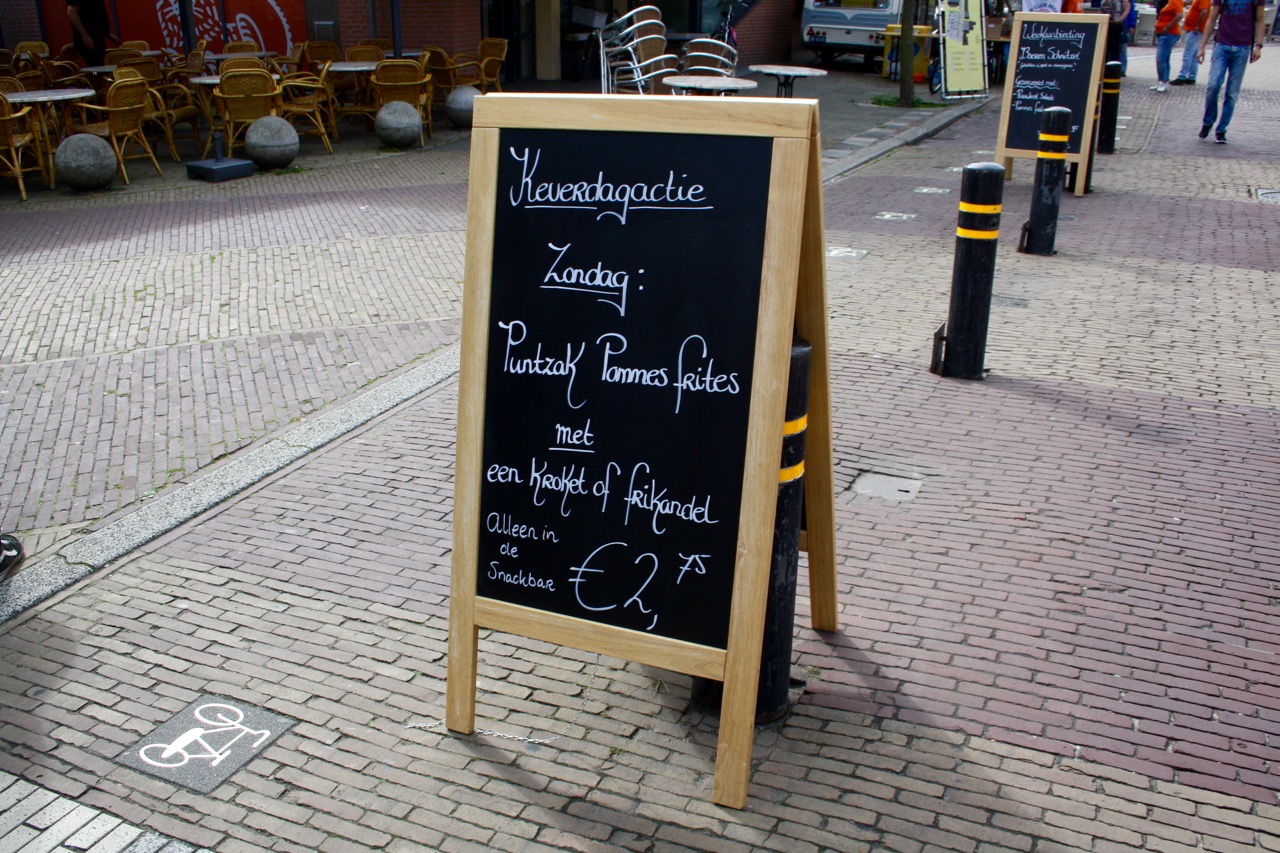 Keverdagactie
Zondag:
Puntzak Pommes frites
met
een kroket of frikandel
Alleen in
de
Snackbar
€2,75
Weekaanbieding
Boeren Schnitzel